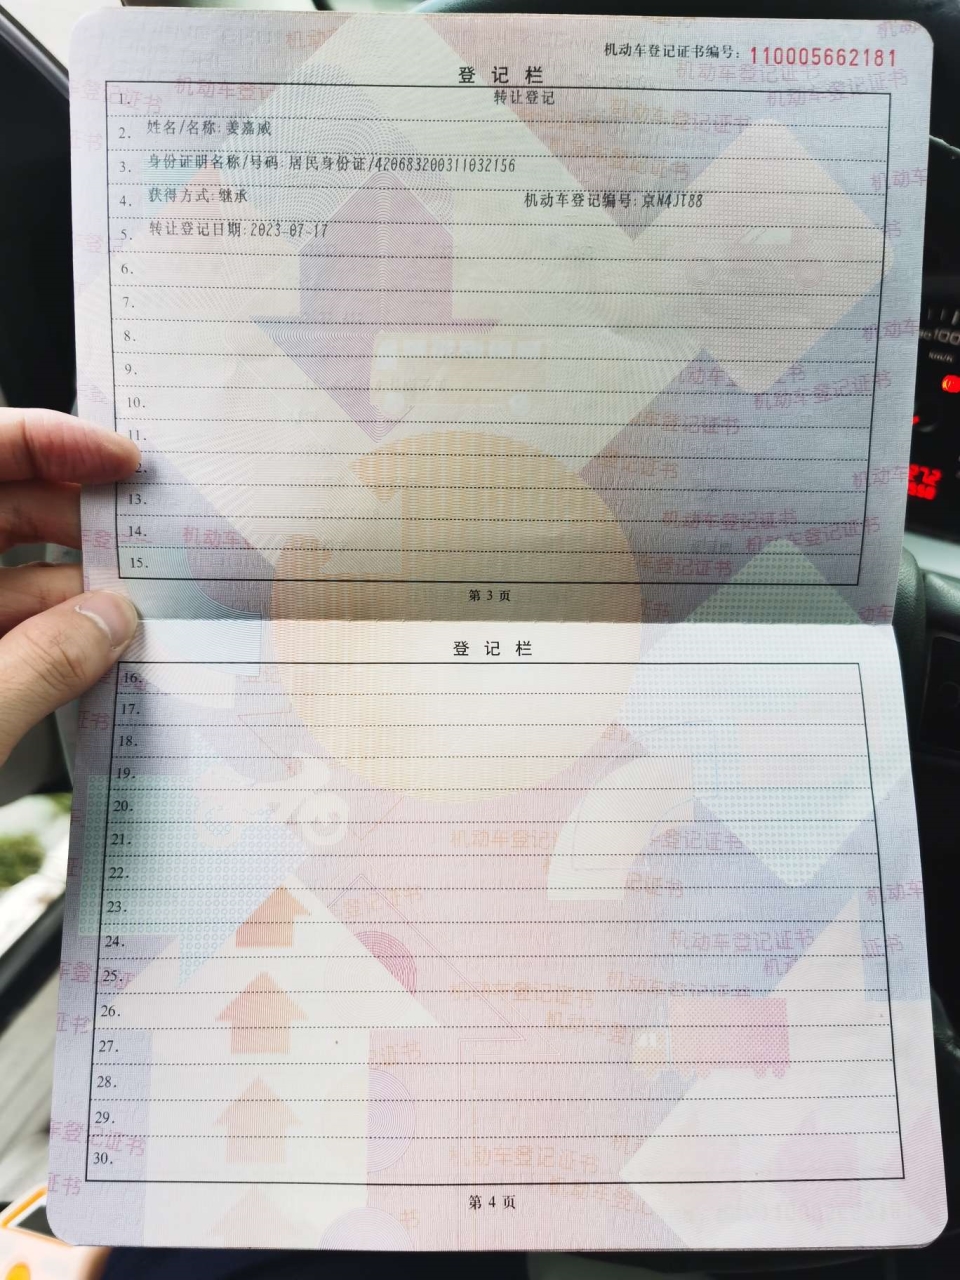 机动车登记证书编号：110005662181
登记栏
1. 转让登记
2. 姓名/名称:姜嘉威
3. 身份证明名称/号码:居民身份证/420683200311032156
4. 获得方式:继承 机动车登记编号:京N4JT88
5. 转让登记日期:2023-07-17
6.
7.
8.
9.
10.
11.
13.
14.
15.
第 3 页
登记栏
16.
17.
18.
19.
20.
21.
22.
23.
24.
25.
26.
27.
28.
29.
30.
第 4 页